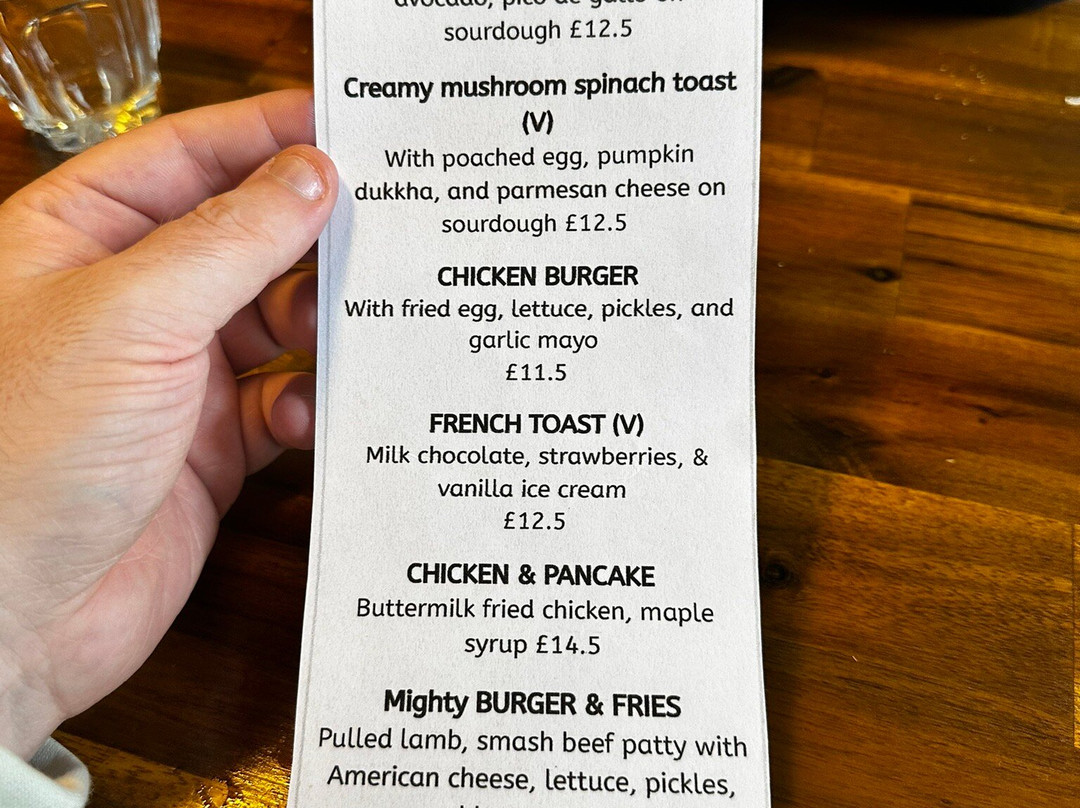 avocado, pico de gallo on
sourdough £12.5
Creamy mushroom spinach toast
(V)
With poached egg, pumpkin
dukkha, and parmesan cheese on
sourdough £12.5
CHICKEN BURGER
With fried egg, lettuce, pickles, and
garlic mayo
£11.5
FRENCH TOAST (V)
Milk chocolate, strawberries, &
vanilla ice cream
£12.5
CHICKEN & PANCAKE
Buttermilk fried chicken, maple
syrup £14.5
Mighty BURGER & FRIES
Pulled lamb, smash beef patty with
American cheese, lettuce, pickles,